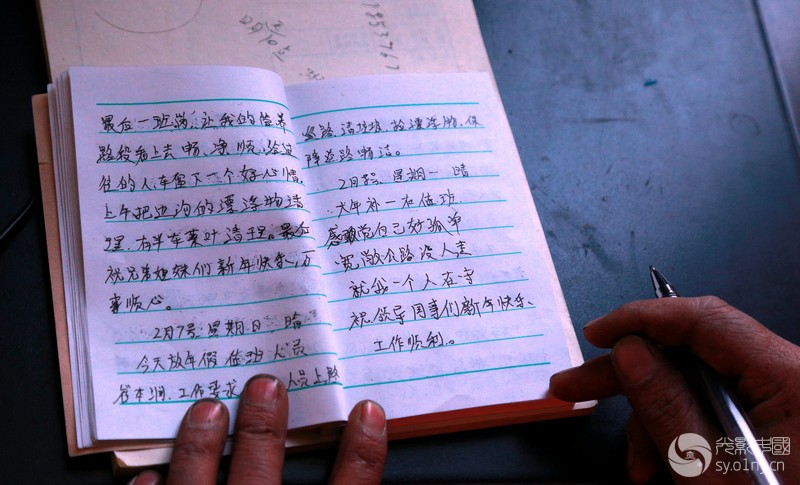 最后一班岗:让我的管养
路段看上去畅、洁、顺、给过
往的人车留下一个好心情。
上午把边沟的漂涤物清
理,有半车菜叶清理。最后
祝兄弟姐妹们新年快乐,万
事顺心。
2月7号 星期日 晴
今天放年假 值班 人员
工作要求 人员上路
巡路 清垃圾,捡漂浮物,保
障道路畅洁。
2月8号 星期一 晴
大年初一在值班
感觉自己好孤单
宽敞公路没人走
就我一个人在守
祝领导同事们新年快乐、
工作顺利。
sy.o1ny.cn